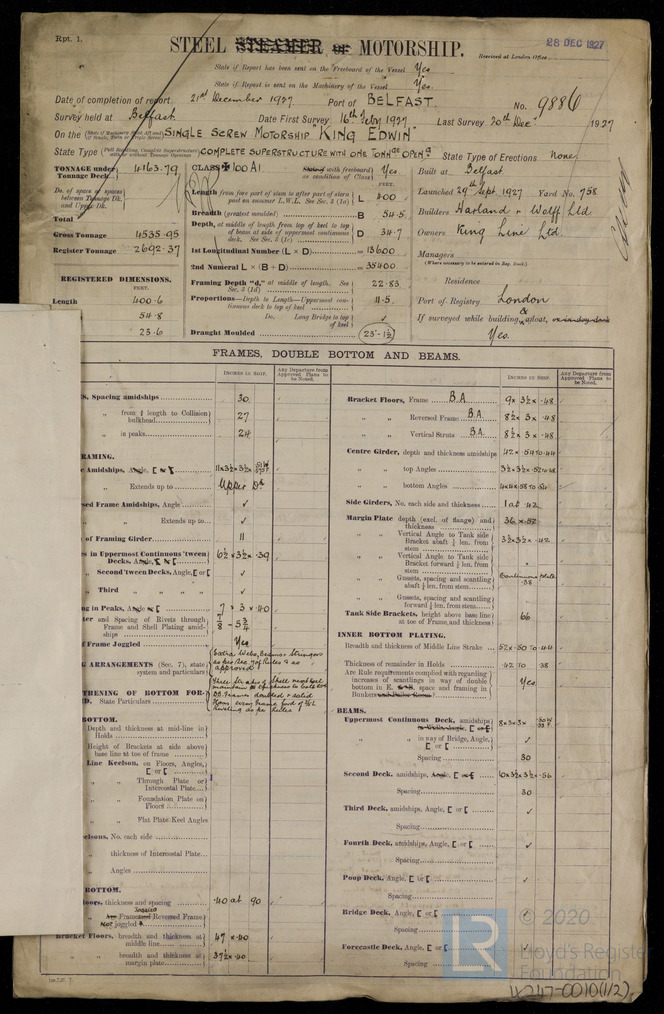 Rpt. 1.
28 DEC 1927
STEEL STEAMER or MOTORSHIP.
Received at London Office
State if Report has been sent on the Freeboard of the Vessel Yes
State if Report is sent on the Machinery of the Vessel Yes.
Date of completion of report 21st December 1927. Port of BELFAST. No. 9886
Survey held at Belfast. Date First Survey 16th Feby 1927 Last Survey 20th Dec. 1927
On the SINGLE SCREW MOTORSHIP "KING EDWIN"
State Type COMPLETE SUPERSTRUCTURE WITH ONE TONNGE OPENG State Type of Erections None
TONNAGE under Tonnage Deck 4163.79
CLASS 100 A1 with freeboard as condition of Class Yes.
Built at Belfast
Do. of space or spaces between Tonnage Dk. and Upper Dk.
Length from fore part of stem to after part of stern post on summer L.W.L. See Sec. 3 (1a) L 400
Launched 29th Sept. 1927 Yard No. 758
Total
Breadth (greatest moulded) B 54.5
Builders Harland & Wolff Ltd.
Gross Tonnage 4535.95
Depth, at middle of length from top of keel to top of beam at side of uppermost continuous deck. See Sec. 3 (1c) D 34.7
Owners King Line Ltd.
Register Tonnage 2692.37
1st Longitudinal Number (L × D) = 13600
Managers
(Where necessary to be entered in Reg. Book.)
2nd Numeral L × (B + D) = 35400
Residence
REGISTERED DIMENSIONS.
FEET.
Framing Depth "d," at middle of length. See Sec. 3 (1d) 22.83
Length 400.6
Proportions—Depth to Length—Uppermost continuous deck to top of keel 11.5
Port of Registry London
54.8
Do. Long Bridge to top of keel
If surveyed while building & afloat, or in dry dock
23.6
Draught Moulded 23'-1½
Yes.
FRAMES, DOUBLE BOTTOM AND BEAMS.
INCHES IN SHIP.
Any Departure from Approved Plans to be Noted.
INCHES IN SHIP.
Any Departure from Approved Plans to be Noted.
S, Spacing amidships 30
" from ⅕ length to Collision bulkhead 27
" in peaks 24
RAMING.
e Amidships, Angle, [ or
" Extends up to Upper Dk
sed Frame Amidships, Angle
" Extends up to
of Framing Girder 11
es in Uppermost Continuous 'tween Decks, Angle 6½ × 3½ × .39
" Second 'tween Decks, Angle, [ or [
" Third " "
ng in Peaks, Angle or [ 7 × 3 × .40
ter and Spacing of Rivets through Frame and Shell Plating amidships 7/8 - 5¾
f Frame Joggled Yes
G ARRANGEMENTS (Sec. 7), state system and particulars
THENING OF BOTTOM FOR-
D. State Particulars
BOTTOM.
Depth and thickness at mid-line in Holds
Height of Brackets at side above base line at toe of frame
Line Keelson, on Floors, Angles, [ or [
" Through Plate or Intercostal Plate
" Foundation Plate on Floors
" Flat Plate Keel Angles
elsons, No. each side
thickness of Intercostal Plate
Angles
BOTTOM.
oors, thickness and spacing .40 at 90
Frame Reversed Frame
Not joggled
Bracket Floors, breadth and thickness at middle line 47 × .40
" breadth and thickness at margin plate 37½ × .40
Bracket Floors, Frame B.A 9 × 3½ × .48
" Reversed Frame B.A 8½ × 3 × .48
" Vertical Struts B.A 8½ × 3 × .48
Centre Girder, depth and thickness amidships 42 × .54 to .44
" top Angles 3½ × 3½ × .52 to .48
" bottom Angles
Side Girders, No. each side and thickness 1 at .42
Margin Plate depth (excl. of flange) and thickness 36 × .52
" Vertical Angle to Tank side Bracket abaft ¼ len. from stem 3½ × 3½ × .42
" Vertical Angle to Tank side Bracket forward ¼ len. from stem
" Gussets, spacing and scantling abaft ¼ len. from stem Continuous plate .38
" Gussets, spacing and scantling forward ¼ len. from stem
Tank Side Brackets, height above base line at toe of Frame, and thickness 66
INNER BOTTOM PLATING.
Breadth and thickness of Middle Line Strake 52 × .50 to .44
Thickness of remainder in Holds .42 to .38
Are Rule requirements complied with regarding increases of scantlings in way of double bottom in E. space and framing in Bunkers Yes.
BEAMS.
Uppermost Continuous Deck, amidships 8 × 3 × 3 ×
" in way of Bridge, Angle, [ or [
Spacing 30
Second Deck, amidships, Angle, [ or [ 6 × 3½ × 3½ × .56
Spacing 30
Third Deck, amidships, Angle, [ or [
Spacing
Fourth Deck, amidships, Angle, [ or [
Spacing
Poop Deck, Angle, [ or [
Spacing
Bridge Deck, Angle, [ or [
Spacing
Forecastle Deck, Angle, [ or [
Spacing
LR
© 2020
Lloyd's Register
Foundation
W247-0010(1/2)